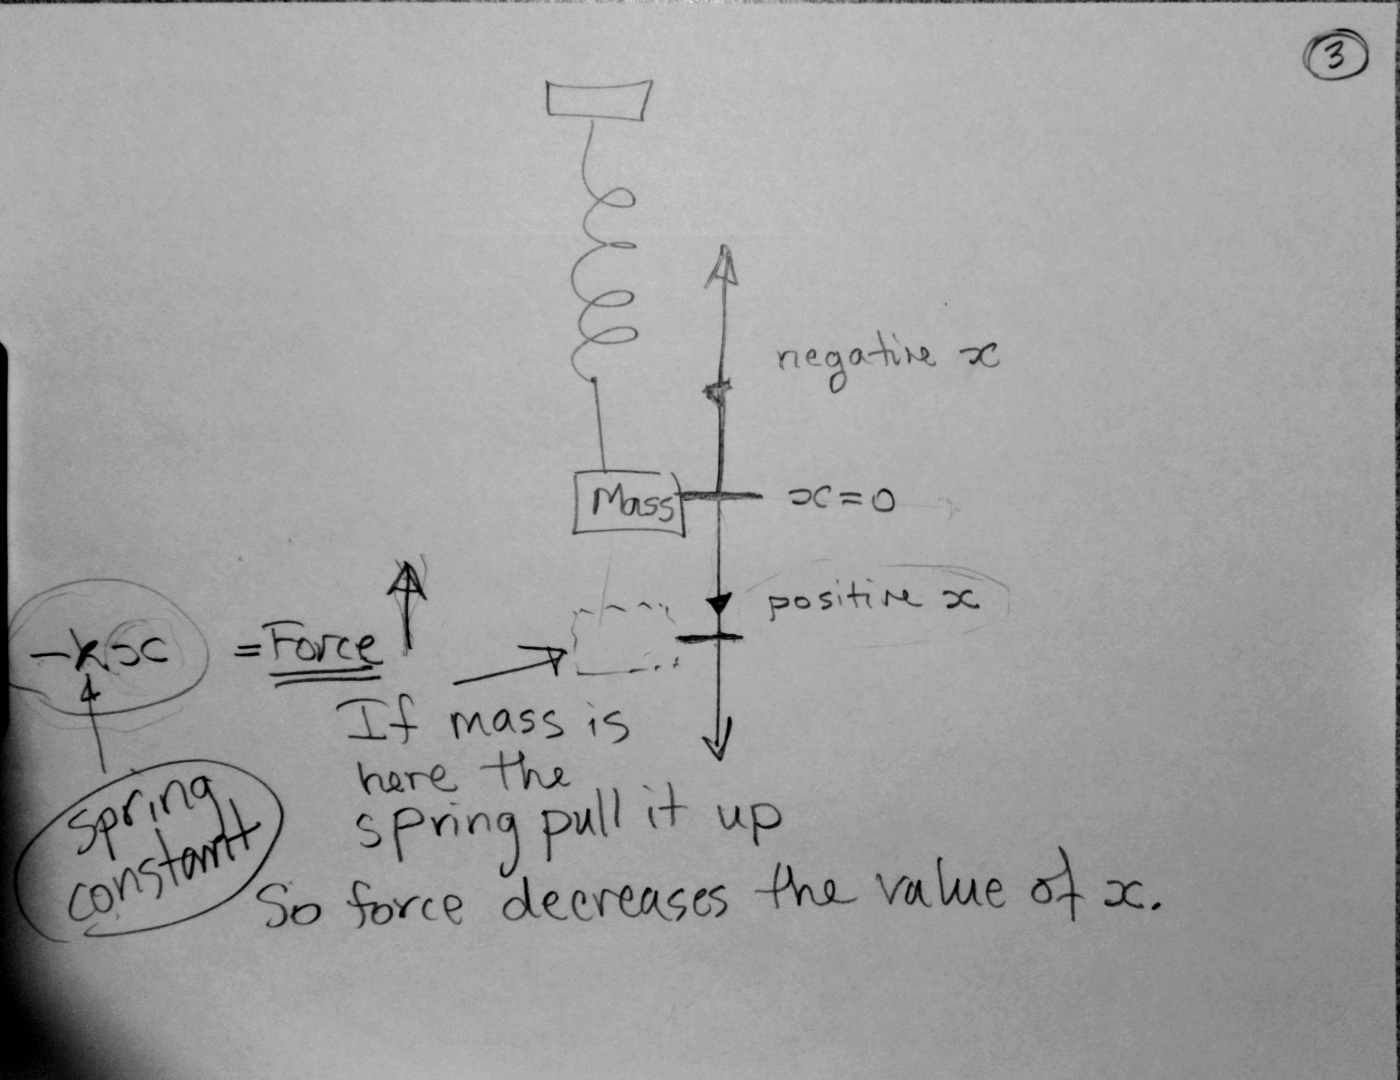 3
negative x
Mass
x = 0
positive x
-kx = Force
If mass is
here the
spring pull it up
spring
constant
So force decreases the value of x.